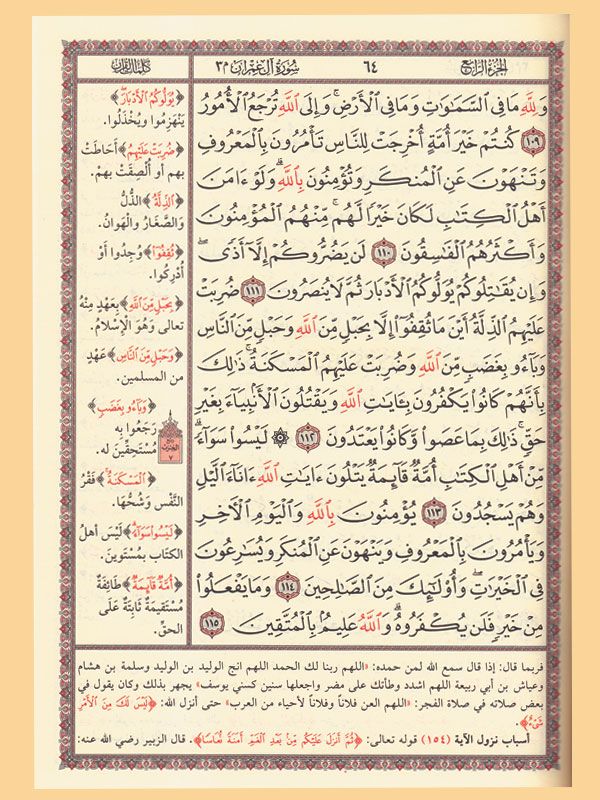 الجزء الرابع
٦٤
سورة آل عمران ٣
كلمات القرآن
وَلِلَّهِ مَا فِي السَّمَاوَاتِ وَمَا فِي الْأَرْضِ ۚ وَإِلَى اللَّهِ تُرْجَعُ الْأُمُورُ
﴿١٠٩﴾ كُنتُمْ خَيْرَ أُمَّةٍ أُخْرِجَتْ لِلنَّاسِ تَأْمُرُونَ بِالْمَعْرُوفِ
وَتَنْهَوْنَ عَنِ الْمُنكَرِ وَتُؤْمِنُونَ بِاللَّهِ ۗ وَلَوْ ءَامَنَ
أَهْلُ الْكِتَابِ لَكَانَ خَيْرًا لَّهُم ۚ مِّنْهُمُ الْمُؤْمِنُونَ
وَأَكْثَرُهُمُ الْفَاسِقُونَ ﴿١١٠﴾ لَن يَضُرُّوكُمْ إِلَّا أَذًى ۖ
وَإِن يُقَاتِلُوكُمْ يُوَلُّوكُمُ الْأَدْبَارَ ثُمَّ لَا يُنصَرُونَ ﴿١١١﴾ ضُرِبَتْ
عَلَيْهِمُ الذِّلَّةُ أَيْنَ مَا ثُقِفُوا إِلَّا بِحَبْلٍ مِّنَ اللَّهِ وَحَبْلٍ مِّنَ النَّاسِ
وَبَاءُو بِغَضَبٍ مِّنَ اللَّهِ وَضُرِبَتْ عَلَيْهِمُ الْمَسْكَنَةُ ۚ ذَٰلِكَ
بِأَنَّهُمْ كَانُوا يَكْفُرُونَ بِـَٔايَاتِ اللَّهِ وَيَقْتُلُونَ الْأَنبِيَاءَ بِغَيْرِ
حَقٍّ ۚ ذَٰلِكَ بِمَا عَصَوا وَّكَانُوا يَعْتَدُونَ ﴿١١٢﴾ ۞ لَيْسُوا سَوَاءً ۗ
مِّنْ أَهْلِ الْكِتَابِ أُمَّةٌ قَائِمَةٌ يَتْلُونَ ءَايَاتِ اللَّهِ ءَانَاءَ الَّيْلِ
وَهُمْ يَسْجُدُونَ ﴿١١٣﴾ يُؤْمِنُونَ بِاللَّهِ وَالْيَوْمِ الْآخِرِ
وَيَأْمُرُونَ بِالْمَعْرُوفِ وَيَنْهَوْنَ عَنِ الْمُنكَرِ وَيُسَارِعُونَ
فِي الْخَيْرَاتِ ۖ وَأُولَٰئِكَ مِنَ الصَّالِحِينَ ﴿١١٤﴾ وَمَا يَفْعَلُوا
مِنْ خَيْرٍ فَلَن يُكْفَرُوهُ ۗ وَاللَّهُ عَلِيمٌ بِالْمُتَّقِينَ ﴿١١٥﴾
﴿يُوَلُّوكُمُ الْأَدْبَارَ﴾
يَنْهَزِمُوا ويُخْذَلُوا.
﴿ضُرِبَتْ عَلَيْهِمُ﴾ أَحَاطَتْ
بهم أو أُلْصِقَتْ بهمْ.
﴿الذِّلَّةُ﴾ الذُّلُّ
وَالصَّغَارُ والْهَوانُ.
﴿ثُقِفُوا﴾ وُجِدُوا أَوْ
أُدْرِكُوا.
﴿بِحَبْلٍ مِّنَ اللَّهِ﴾ بِعَهْدٍ مِنْهُ
تعالى وَهُوَ الْإِسْلَامُ.
﴿وَحَبْلٍ مِّنَ النَّاسِ﴾ عَهْدٍ
من المسلمين.
﴿وَبَاءُو بِغَضَبٍ﴾
رَجَعُوا بِهِ
مُسْتَحِقِّينَ له.
ربع
الحزب
٧
﴿الْمَسْكَنَةُ﴾ فَقْرُ
النَّفْسِ وَشُحُّهَا.
﴿لَيْسُوا سَوَاءً﴾ لَيْسَ أهلُ
الكتاب بمُسْتَوينَ.
﴿أُمَّةٌ قَائِمَةٌ﴾ طَائِفَةٌ
مُسْتَقيمَةٌ ثَابِتَةٌ عَلَى
الحقِّ.
فربما قال: إذا قال سمع الله لمن حمده: «اللهم ربنا لك الحمد اللهم انج الوليد بن الوليد وسلمة بن هشام
وعياش بن أبي ربيعة اللهم اشدد وطأتك على مضر واجعلها سنين كسني يوسف» يجهر بذلك وكان يقول في
بعض صلاته في صلاة الفجر: «اللهم العن فلاناً وفلاناً لأحياء من العرب» حتى أنزل الله: ﴿لَيْسَ لَكَ مِنَ الْأَمْرِ
شَيْءٌ﴾.
أسباب نزول الآية (١٥٤) قوله تعالى: ﴿ثُمَّ أَنزَلَ عَلَيْكُم مِّنْ بَعْدِ الْغَمِّ أَمَنَةً نُّعَاسًا﴾. قال الزبير رضي الله عنه: